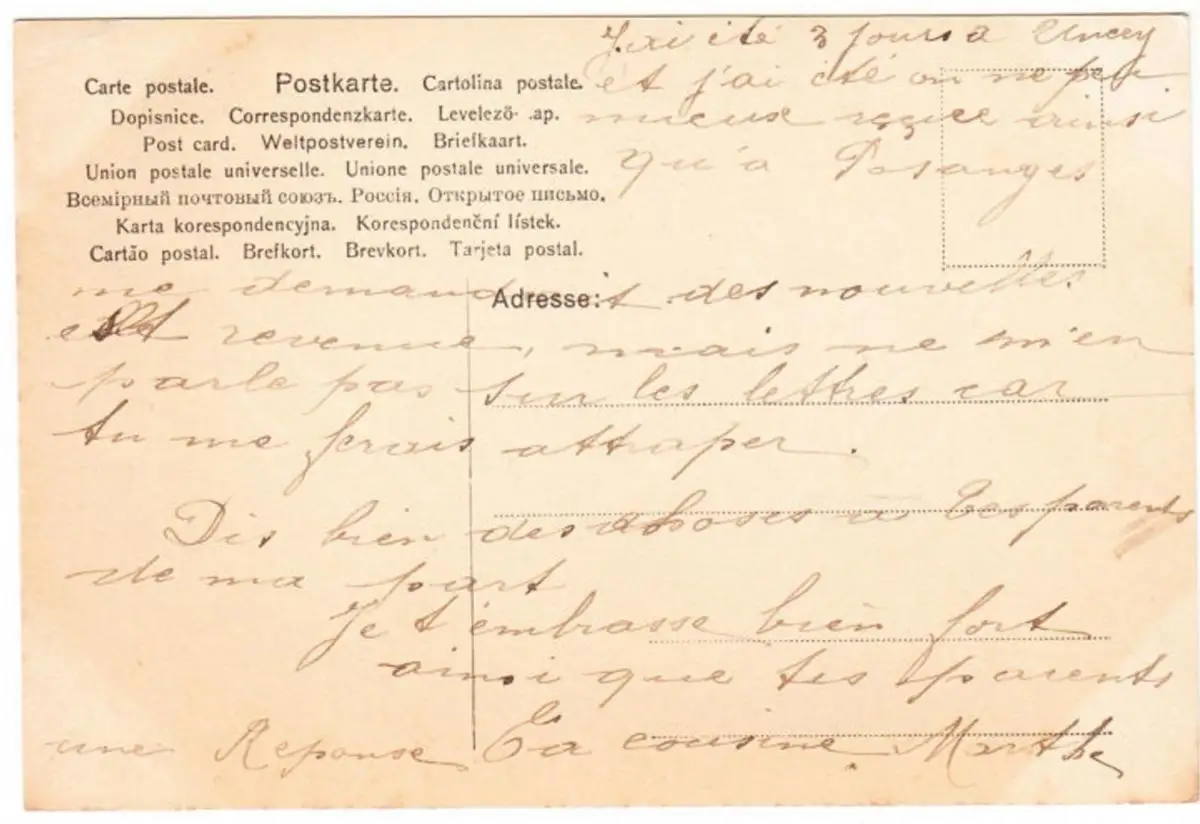 J'ai été 3 jours a Uncey
et j'ai été on ne peu
mieux reçue ainsi
qu'a Posanges
Carte postale. Postkarte. Cartolina postale.
Dopisnice. Correspondenzkarte. Levelezö- .ap.
Post card. Weltpostverein. Briefkaart.
Union postale universelle. Unione postale universale.
Всемірный почтовый союзъ. Россія. Открытое письмо.
Karta korespondencyjna. Korespondenční lístek.
Cartão postal. Brefkort. Brevkort. Tarjeta postal.
Adresse:
me demandant des nouvelles
est revenue, mais ne m'en
parle pas sur les lettres car
tu me ferais attraper.
Dis bien des choses a tes parents
de ma part
Je t'embrasse bien fort
ainsi que tes parents
une Reponse Ta cousine Marthe